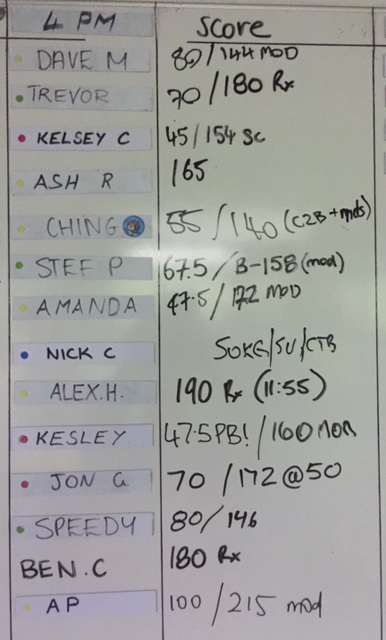 4 PM Score
DAVE M 80/144 MOD
TREVOR 70/180 Rx
KELSEY C 45/154 SC
ASH R 165
CHING 55/140 (C2B+mds)
STEF P 67.5/B-158 (mod)
AMANDA 47.5/172 MOD
NICK C 50KG/SU/CTB
ALEX.H. 190 Rx (11:55)
KESLEY 47.5PB!/160
JON G 70/172@50
SPEEDY 80/146
BEN.C 180 Rx
AP 100/215 mod